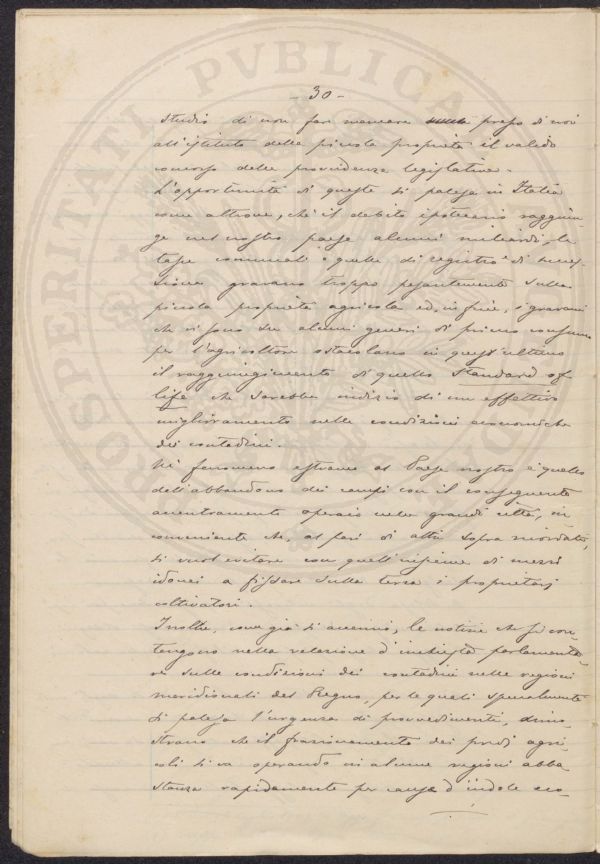 - 30 -
studio di non far mancare presso di noi
all'istituto della piccola proprietà il valido
concorso delle provvidenze legislative.
L'opportunità di queste si palesa in Italia
come altrove, chè il debito ipotecario raggiun-
ge nel nostro paese alcuni miliardi, le
tasse comunali e quelle di registro di succes-
sione gravano troppo pesantemente sulla
piccola proprietà agricola ed, infine, i gravami
che vi sono su alcuni generi di primo consumo
per l'agricoltore ostacolano in quest'ultimo
il raggiungimento di quello Standard of
life che sarebbe indizio di un effettivo
miglioramento nelle condizioni economiche
dei contadini.
Nè fenomeno estraneo al Paese nostro è quello
dell'abbandono dei campi con il conseguente
accentramento operaio nelle grandi città, in
conveniente che, al pari di altri sopra ricordati,
si vuol evitare con quell'insieme di mezzi
idonei a fissare sulla terra i proprietarj
coltivatori.
Inoltre, come già si accennò, le notizie che si con-
tengono nella relazione d'inchiesta parlamenta-
re sulle condizioni dei contadini nelle regioni
meridionali del Regno, per le quali specialmente
si palesa l'urgenza di provvedimenti, dimo-
strano che il frazionamento dei fondi agri-
coli si va operando in alcune regioni abba
stanza rapidamente per cause d'indole eco-
PROSPERITATI PVBLICAE